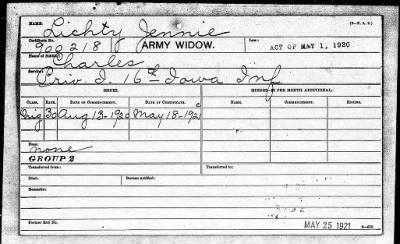 NAME: Lichty Jennie
Certificate No. 900218 ARMY WIDOW. Law: ACT OF MAY 1, 1920
Name of Soldier: Charles
Service: Priv. I. 16th Iowa Inf
ISSUE. MINORS $2 PER MONTH ADDITIONAL.
CLASS. RATE. DATE OF COMMENCEMENT. DATE OF CERTIFICATE. NAME. COMMENCEMENT. ENDING.
Orig 30 Aug 12-1920 May 18-1921
none
GROUP 2
Transferred from: Transferred to:
Died: Bureau notified:
Remarks:
Former Roll No. MAY 25 1921